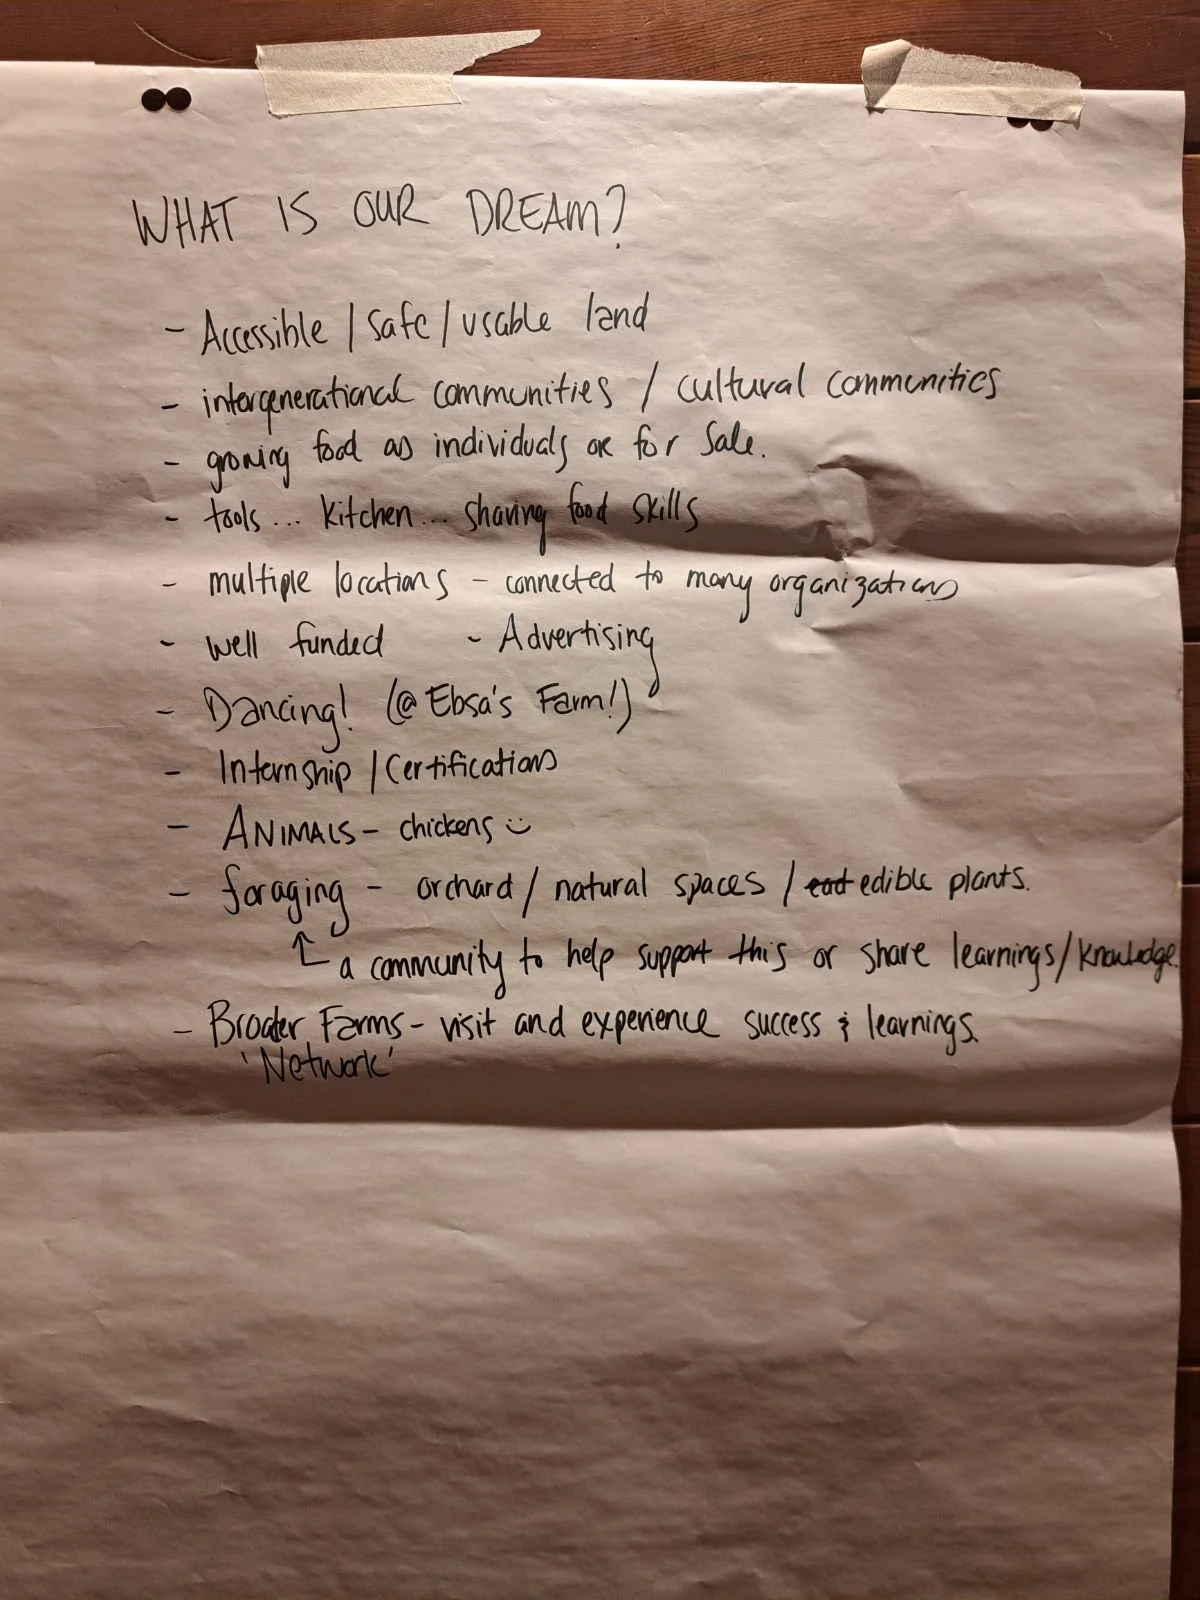 WHAT IS OUR DREAM?
- Accessible / safe / usable land
- intergenerational communities / cultural communities
- growing food as individuals or for sale.
- tools... kitchen... sharing food skills
- multiple locations - connected to many organizations
- well funded - Advertising
- Dancing! (@ Ebsa's Farm!)
- Internship / Certifications
- ANIMALS - chickens
- foraging - orchard / natural spaces / eat edible plants.
a community to help support this or share learnings / knowledge.
- Broader Farms - visit and experience success & learnings.
'Network'